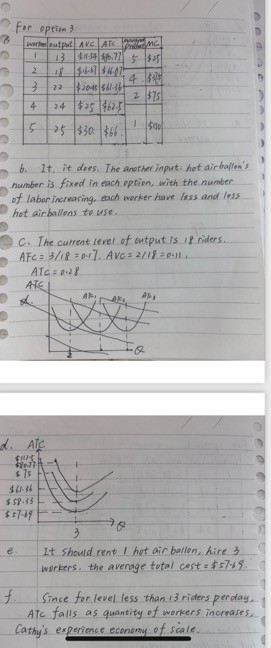 For option 3
worker output AVC ATC marginal product MC
1 13 $11.54
2 18 5 $25
3 22 $20.45 $61.36 4
4 24 $25 $62.5 2 $75
5 25 $30 $66 1 $150
b. It. it does. The another input: hot airballon's
number is fixed in each option, with the number
of labor increasing, each worker have less and less
hot airballons to use.
C. The current level of output is 18 riders.
AFC = 3/18 = 0.17. AVC = 2/18 = 0.11.
ATC = 0.28
ATC
ATC₁ ATC₂ ATC₃
Q
d. ATC
$75
$61.36
$58.33
$57.69
3 Q
e. It should rent 1 hot air ballon, hire 3
workers. the average total cost = $57.69.
f. Since for level less than 13 riders per day,
ATC falls as quantity of workers increases,
Cathy's experience economy of scale.